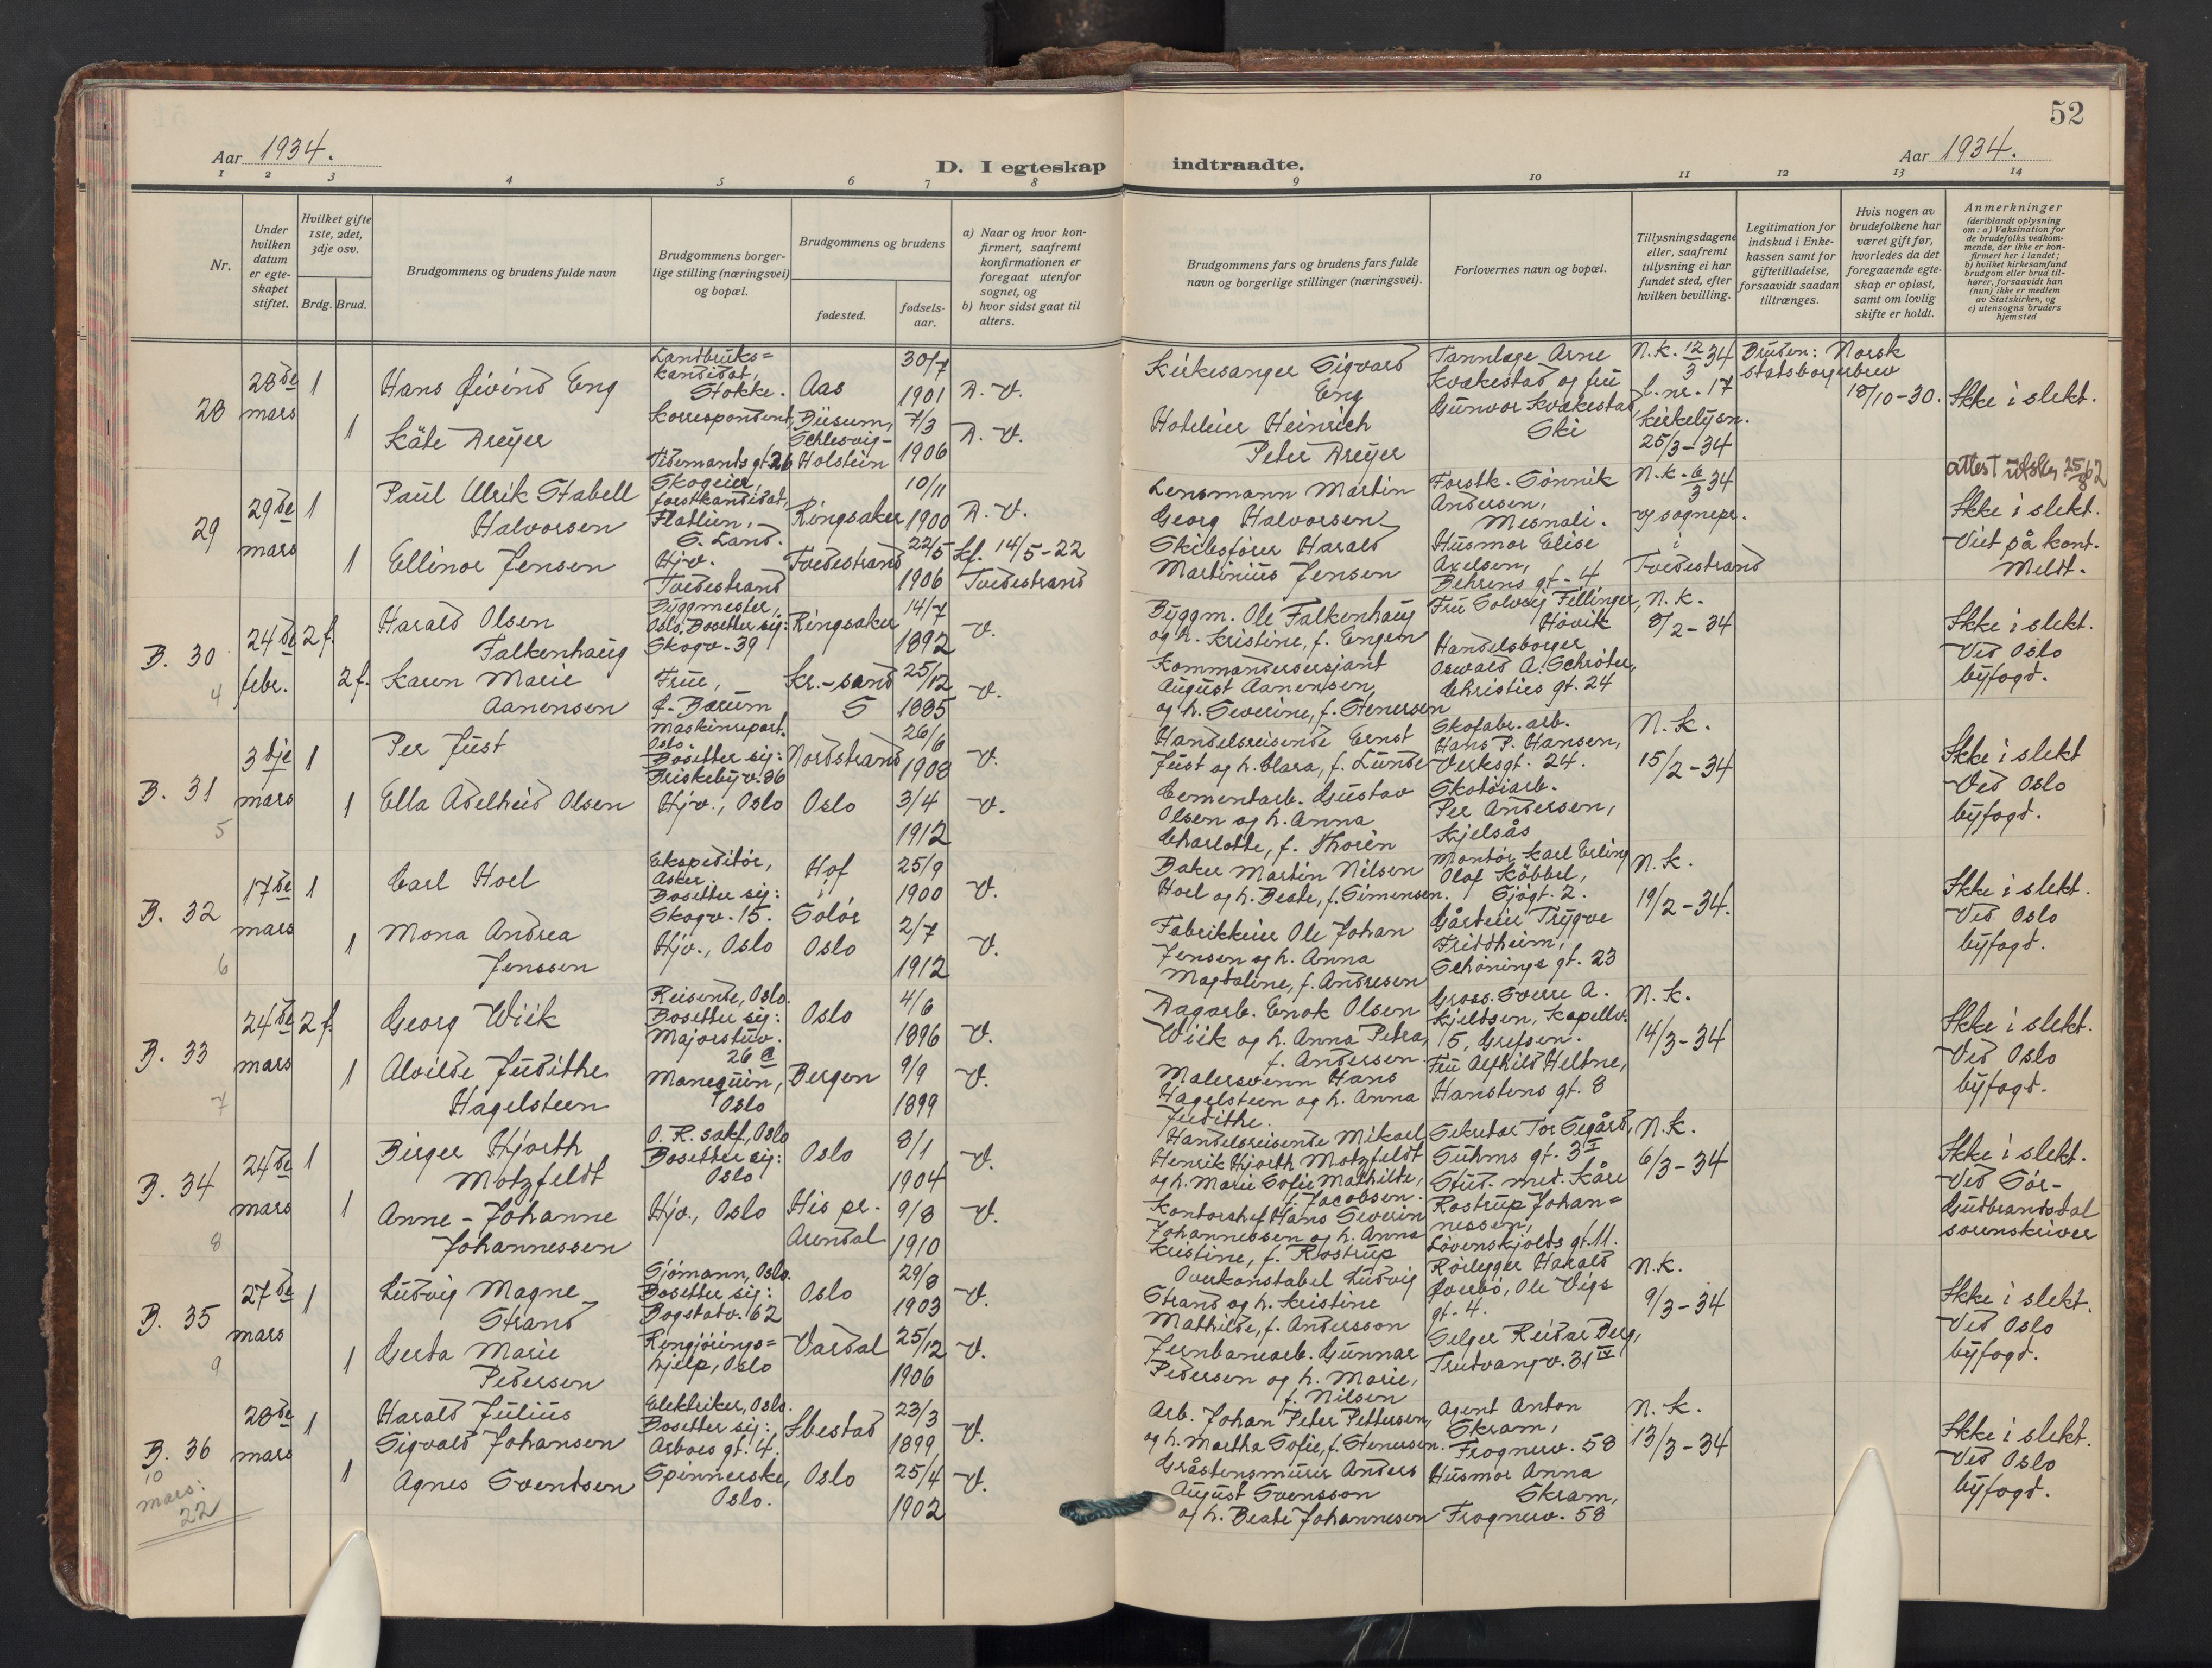 52
Aar 1934.
D. I egteskap indtraadte.
Aar 1934.
1 2 3 4 5 6 7 8 9 10 11 12 13 14
Nr.
Under hvilken datum er egteskapet stiftet.
Hvilket gifte 1ste, 2det, 3dje osv.
Brdg. Brud.
Brudgommens og brudens fulde navn
Brudgommens borgerlige stilling (næringsvei) og bopæl.
Brudgommens og brudens
fødested.
fødselsaar.
a) Naar og hvor konfirmert, saafremt konfirmationen er foregaat utenfor sognet, og
b) hvor sidst gaat til alters.
Brudgommens fars og brudens fars fulde navn og borgerlige stillinger (næringsvei).
Forlovernes navn og bopæl.
Tillysningsdagene eller, saafremt tillysning ei har fundet sted, efter hvilken bevilling.
Legitimation for indskud i Enkekassen samt for giftetilladelse, forsaavidt saadan tiltrænges.
Hvis nogen av brudefolkene har været gift før, hvorledes da det foregaaende egteskap er opløst, samt om lovlig skifte er holdt.
Anmerkninger
(deriblandt oplysning om: a) Vaksination for de brudefolks vedkommende, der ikke er konfirmert her i landet; b) hvilket kirkesamfund brudgom eller brud tilhører, forsaavidt han (hun) ikke er medlem av Statskirken, og c) utensogns bruders hjemsted
28
28de mars
1
Hans Øivind Eng
Landbruks=
kandidat,
Stokke.
Aas
30/7
1901
D. V.
Kirkesanger Sigvard
Eng
Tannlæge Arne
Kvakestad og fru
Gunvor Kvakestad,
Ski
N.k. 12/3 34
L.nr. 17
Kirkelysn.
25/3-34
Bruden: Norsk
statsborgerbrev
18/10-30.
Ikke i slekt.
1
Käte Dreyer
Korrespondent,
Tidemands gt. 26
Büsum,
Schlesvig-
Holstein
7/3
1906
D. V.
Hoteleier Heinrich
Peter Dreyer
29
29de mars
1
Paul Ulrik Stabell
Halvorsen
Skogeier,
forstkandidat,
Flatlien,
S. Land.
Ringsaker
10/11
1900
D. V.
Lensmann Martin
Georg Halvorsen
Forstk. Sønnik
Andersen,
Mesnali.
N.k. 6/3 34
v/ sognepr.
i
Tvedestrand
attest utsker 25/8 62
Ikke i slekt.
Viet på kont.
Meldt.
1
Ellinor Jensen
Hjv.
Tvedestrand
Tvedestrand
22/5
1906
kf. 14/5-22
Tvedestrand
Skibsfører Harald
Martinius Jensen
Husmor Elise
Axelsen,
Behrens gt. 4
B. 30
4
24de febr.
2 f.
Harald Olsen
Falkenhaug
Byggmester,
Oslo. Bosetter sig:
Skogv. 39
Ringsaker
14/7
1892
V.
Byggm. Ole Falkenhaug
og h. Kristine, f. Engen
Fru Solveig Fillinger,
Høvik
N.k.
8/2-34
Ikke i slekt.
Ved Oslo
byfogd.
2 f.
Karen Marie
Aanensen
Frue,
f. Bærum
Kr.-sand
S
25/12
1885
V.
Kommandersersjant
August Aanensen,
og h. Severine, f. Stenersen
Handelsborger
Oswald A. Schrøter,
Christies gt. 24
B. 31
5
3dje mars
1
Per Just
Maskinrepart.
Oslo.
Bosetter sig:
Briskebyv. 36
Nordstrand
26/6
1908
V.
Handelsreisende Ernst
Just og h. Clara, f. Lunde
Skofabr. arb.
Hans P. Hansen,
Verksgt. 24.
N.k.
15/2-34
Ikke i slekt
Ved Oslo
byfogd.
1
Ella Adelheid Olsen
Hjv., Oslo
Oslo
3/4
1912
V.
Cementarb. Gustav
Olsen og h. Anna
Charlotte, f. Thorèn
Skotøiarb.
Per Andersen,
Kjelsås
B. 32
6
17de mars
1
Carl Hoel
Ekspeditør,
Asker.
Bosetter sig:
Skogv. 15.
Hof
i
Solør
25/9
1900
V.
Baker Martin Nilsen
Hoel og h. Beate, f. Simensen.
Montør Karl Erling
Olaf Köbbel,
Sjøgt. 2.
N.k.
19/2-34.
Ikke i slekt.
Ved Oslo
byfogd.
1
Mona Andrea
Jenssen
Hjv., Oslo
Oslo
2/7
1912
V.
Fabrikkeier Ole Johan
Jensen og h. Anna
Magdaline, f. Andresen
Gårdeier Trygve
Friddheim,
Schønings gt. 23
B. 33
7
24de mars
2 f.
Georg Wiik
Reisende, Oslo.
Bosetter sig:
Majorstuv.
26 a
Oslo
4/6
1896
V.
Dagarb. Enok Olsen
Wiik og h. Anna Petra,
f. Andersen.
Gross. Sverre A.
Kjeldsen, Kapellv.
15, Grefsen.
N.k.
14/3-34
Ikke i slekt.
Ved Oslo
byfogd.
1
Alvilde Judithe
Hagelsteen
Manequin,
Oslo
Bergen
9/9
1899
V.
Malersvenn Hans
Hagelsteen og h. Anna
Judithe.
Fru Alfhild Heltne,
Hanstens gt. 8
B. 34
8
24de mars
1
Birger Hjorth
Motzfeldt
O.R. sakf, Oslo
Bosetter sig:
Oslo
Oslo
8/1
1904
V.
Handelsreisende Mikael
Henrik Hjorth Motzfeldt
og h. Marie Sofie Mathilde,
f. Jacobsen.
Sekretær Tor Segård,
Suhms gt. 3 I
N.k.
6/3-34
Ikke i slekt.
Ved Sør-
Gudbrandsdal
sorenskriver
1
Anne-Johanne
Johannessen
Hjv., Oslo
His pr.
Arendal
9/8
1910
V.
Kontorshef Hans Severin
Johannessen og h. Anna
Kristine, f. Rostrup
Stud. med. Kåre
Rostrup Johan=
nessen,
Løvenskjolds gt. 11.
B. 35
9
27de mars
1
Ludvig Magne
Strand
Sjømann, Oslo.
Bosetter sig:
Bogstadv. 62
Oslo
29/8
1903
V.
Overkonstabel Ludvig
Strand og h. Kristine
Mathilde, f. Andersson
Rørlegger Harald
Øverbø, Ole Vigs
gt. 4.
N.k.
9/3-34
Ikke i slekt.
Ved Oslo
byfogd.
1
Gerda Marie
Pedersen
Rengjørings=
hjelp, Oslo
Vardal
25/12
1906
V.
Jernbanearb. Gunnar
Pedersen og h. Marie,
f. Nilsen
Selger Reidar Berg,
Trudvangv. 31 IV
B. 36
10
28de mars
1
Harald Julius
Sigvald Johansen
Elektriker, Oslo.
Bosetter sig:
Asbors gt. 4.
Ibestad
23/3
1899
V.
Arb. Johan Peter Pettersen,
og h. Martha Sofie, f. Stenersen.
Agent Anton
Skram,
Frognerv. 58
N.k.
13/3-34
Ikke i slekt.
Ved Oslo
byfogd.
1
Agnes Svendsen
Spinnerske,
Oslo.
Oslo
25/4
1902
V.
Gråstensmurer Anders
August Svensson
og h. Beate Johannesen
Husmor Anna
Skram,
Frognerv. 58
mars:
22